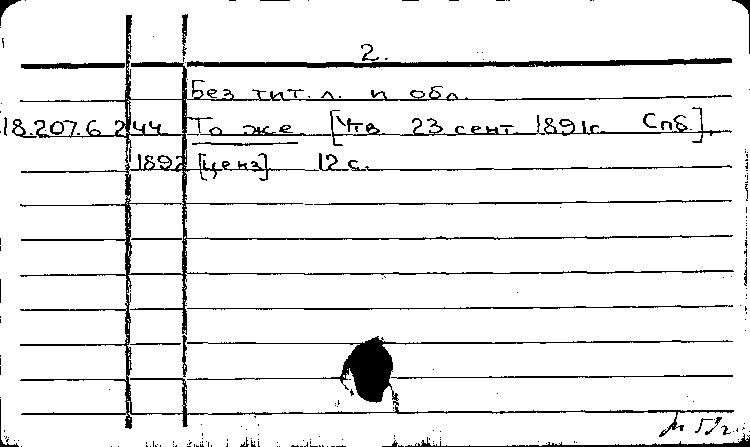 2.
Без тит. л. и обл.
18.207.6.244 То же. [Утв. 23 сент. 1891 г. Спб.],
1892 [ценз]. 12 с.